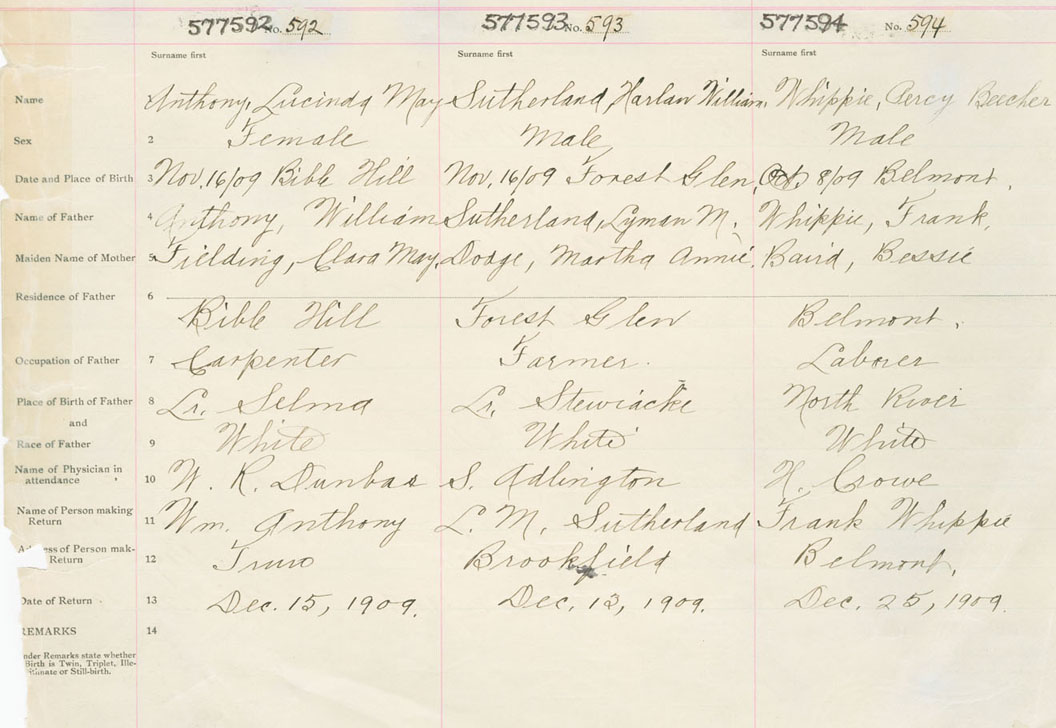 577592 No. 592 577593 No. 593 577594 No. 594
Surname first Surname first Surname first
Name 1 Anthony, Lucinda May Sutherland, Harlan William. Whippie, Percy Beecher
Sex 2 Female Male Male
Date and Place of Birth 3 Nov, 16/09 Bible Hill Nov, 16/09 Forest Glen, Oct 8/09 Belmont.
Name of Father 4 Anthony, William Sutherland, Lyman M. Whippie, Frank.
Maiden Name of Mother 5 Fielding, Clara May. Dodge, Martha Annie. Baird, Bessie
Residence of Father 6
Bible Hill Forest Glen Belmont.
Occupation of Father 7 Carpenter Farmer. Laborer
Place of Birth of Father 8 Lr. Selma Lr. Stewiacke North River
and
Race of Father 9 White White White
Name of Physician in
attendance 10 W. R. Dunbar S. Adlington H. Crowe
Name of Person making
Return 11 Wm. Anthony L. M. Sutherland Frank Whippie
Address of Person mak-
Return 12 Truro Brookfield Belmont,
Date of Return 13 Dec. 15, 1909. Dec. 13, 1909. Dec. 25, 1909.
REMARKS 14
nder Remarks state whether
Birth is Twin, Triplet, Ille-
gitimate or Still-birth.